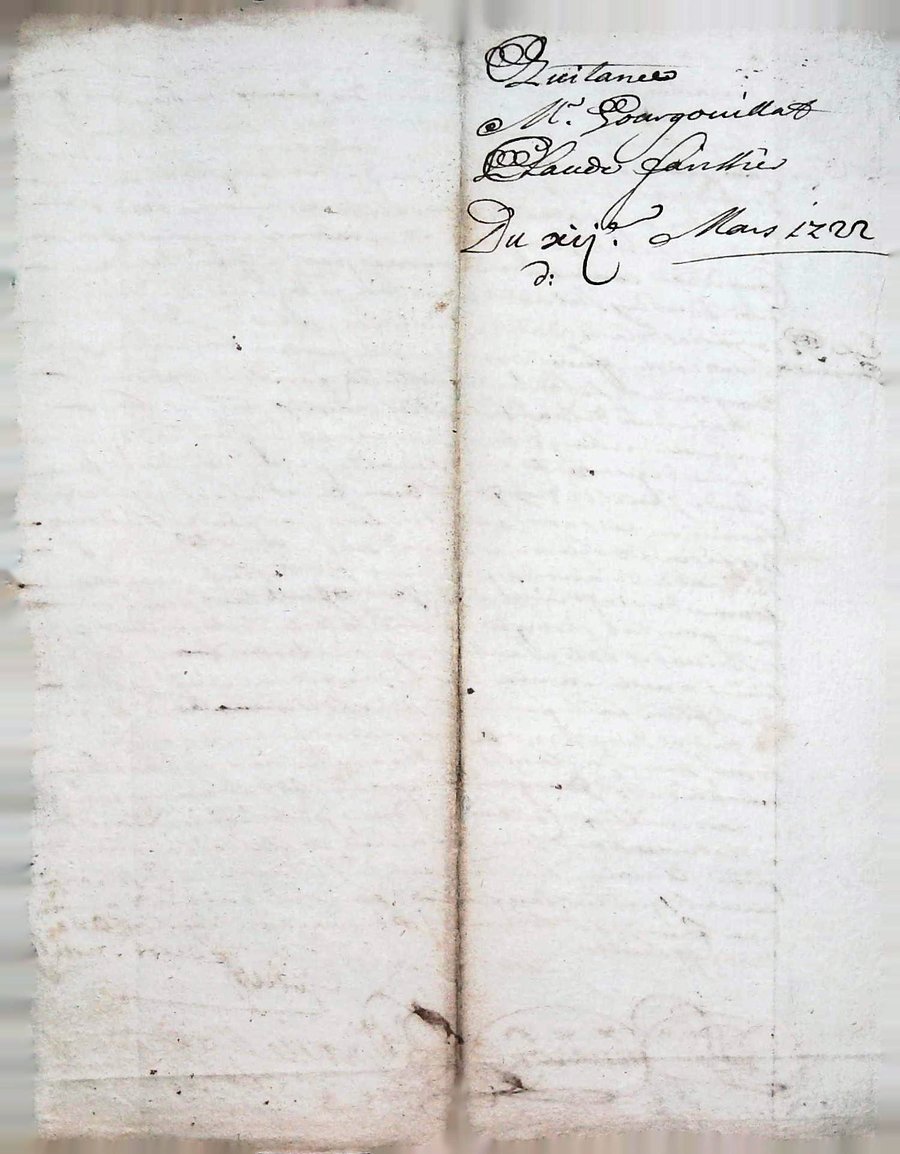 Quitance
Mr. Gourgouillat
Claude Ganthier
Du xije. Mars 1722
d: